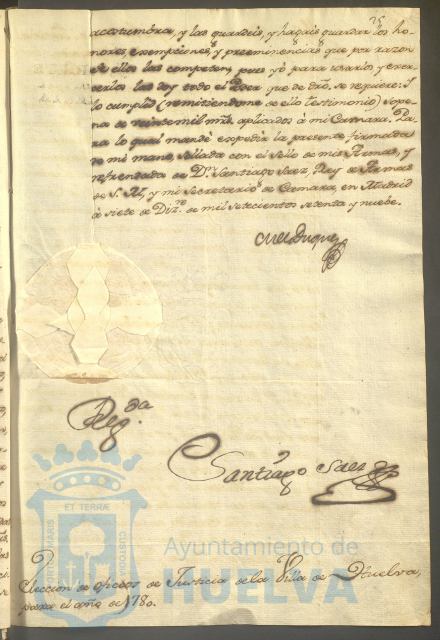 75
acostumbra, y las guardeis, y hagais guardar los ho-
nores exempciones, y preeminencias que por razon
de ellos las competen, pues yo para usarlos y exer-
cerlos las doy todo el Poder que de dro. se requiere: I
lo cumplid (remitiendome de ello testimonio) So pe-
na de veinte mil mrs. aplicados à mi Camara. Pa-
ra lo qual mandè expedir la presente firmada
de mi mano, sellada con el Sello de mis Armas, y
refrendada de Dn. Santiago Saez, Rey de Armas
de S. M., y mi Secretario de Camara, en Madrid
à siete de Diz.re de mil setecientos setenta y nuebe.
Duque
Reg.da
Santiago Saez
ET TERRÆ
PORTUS MARIS
CUSTODIA
Ayuntamiento de
HUELVA
Eleccion de oficios de Justicia de la Villa de Huelva,
para el año de 1780.